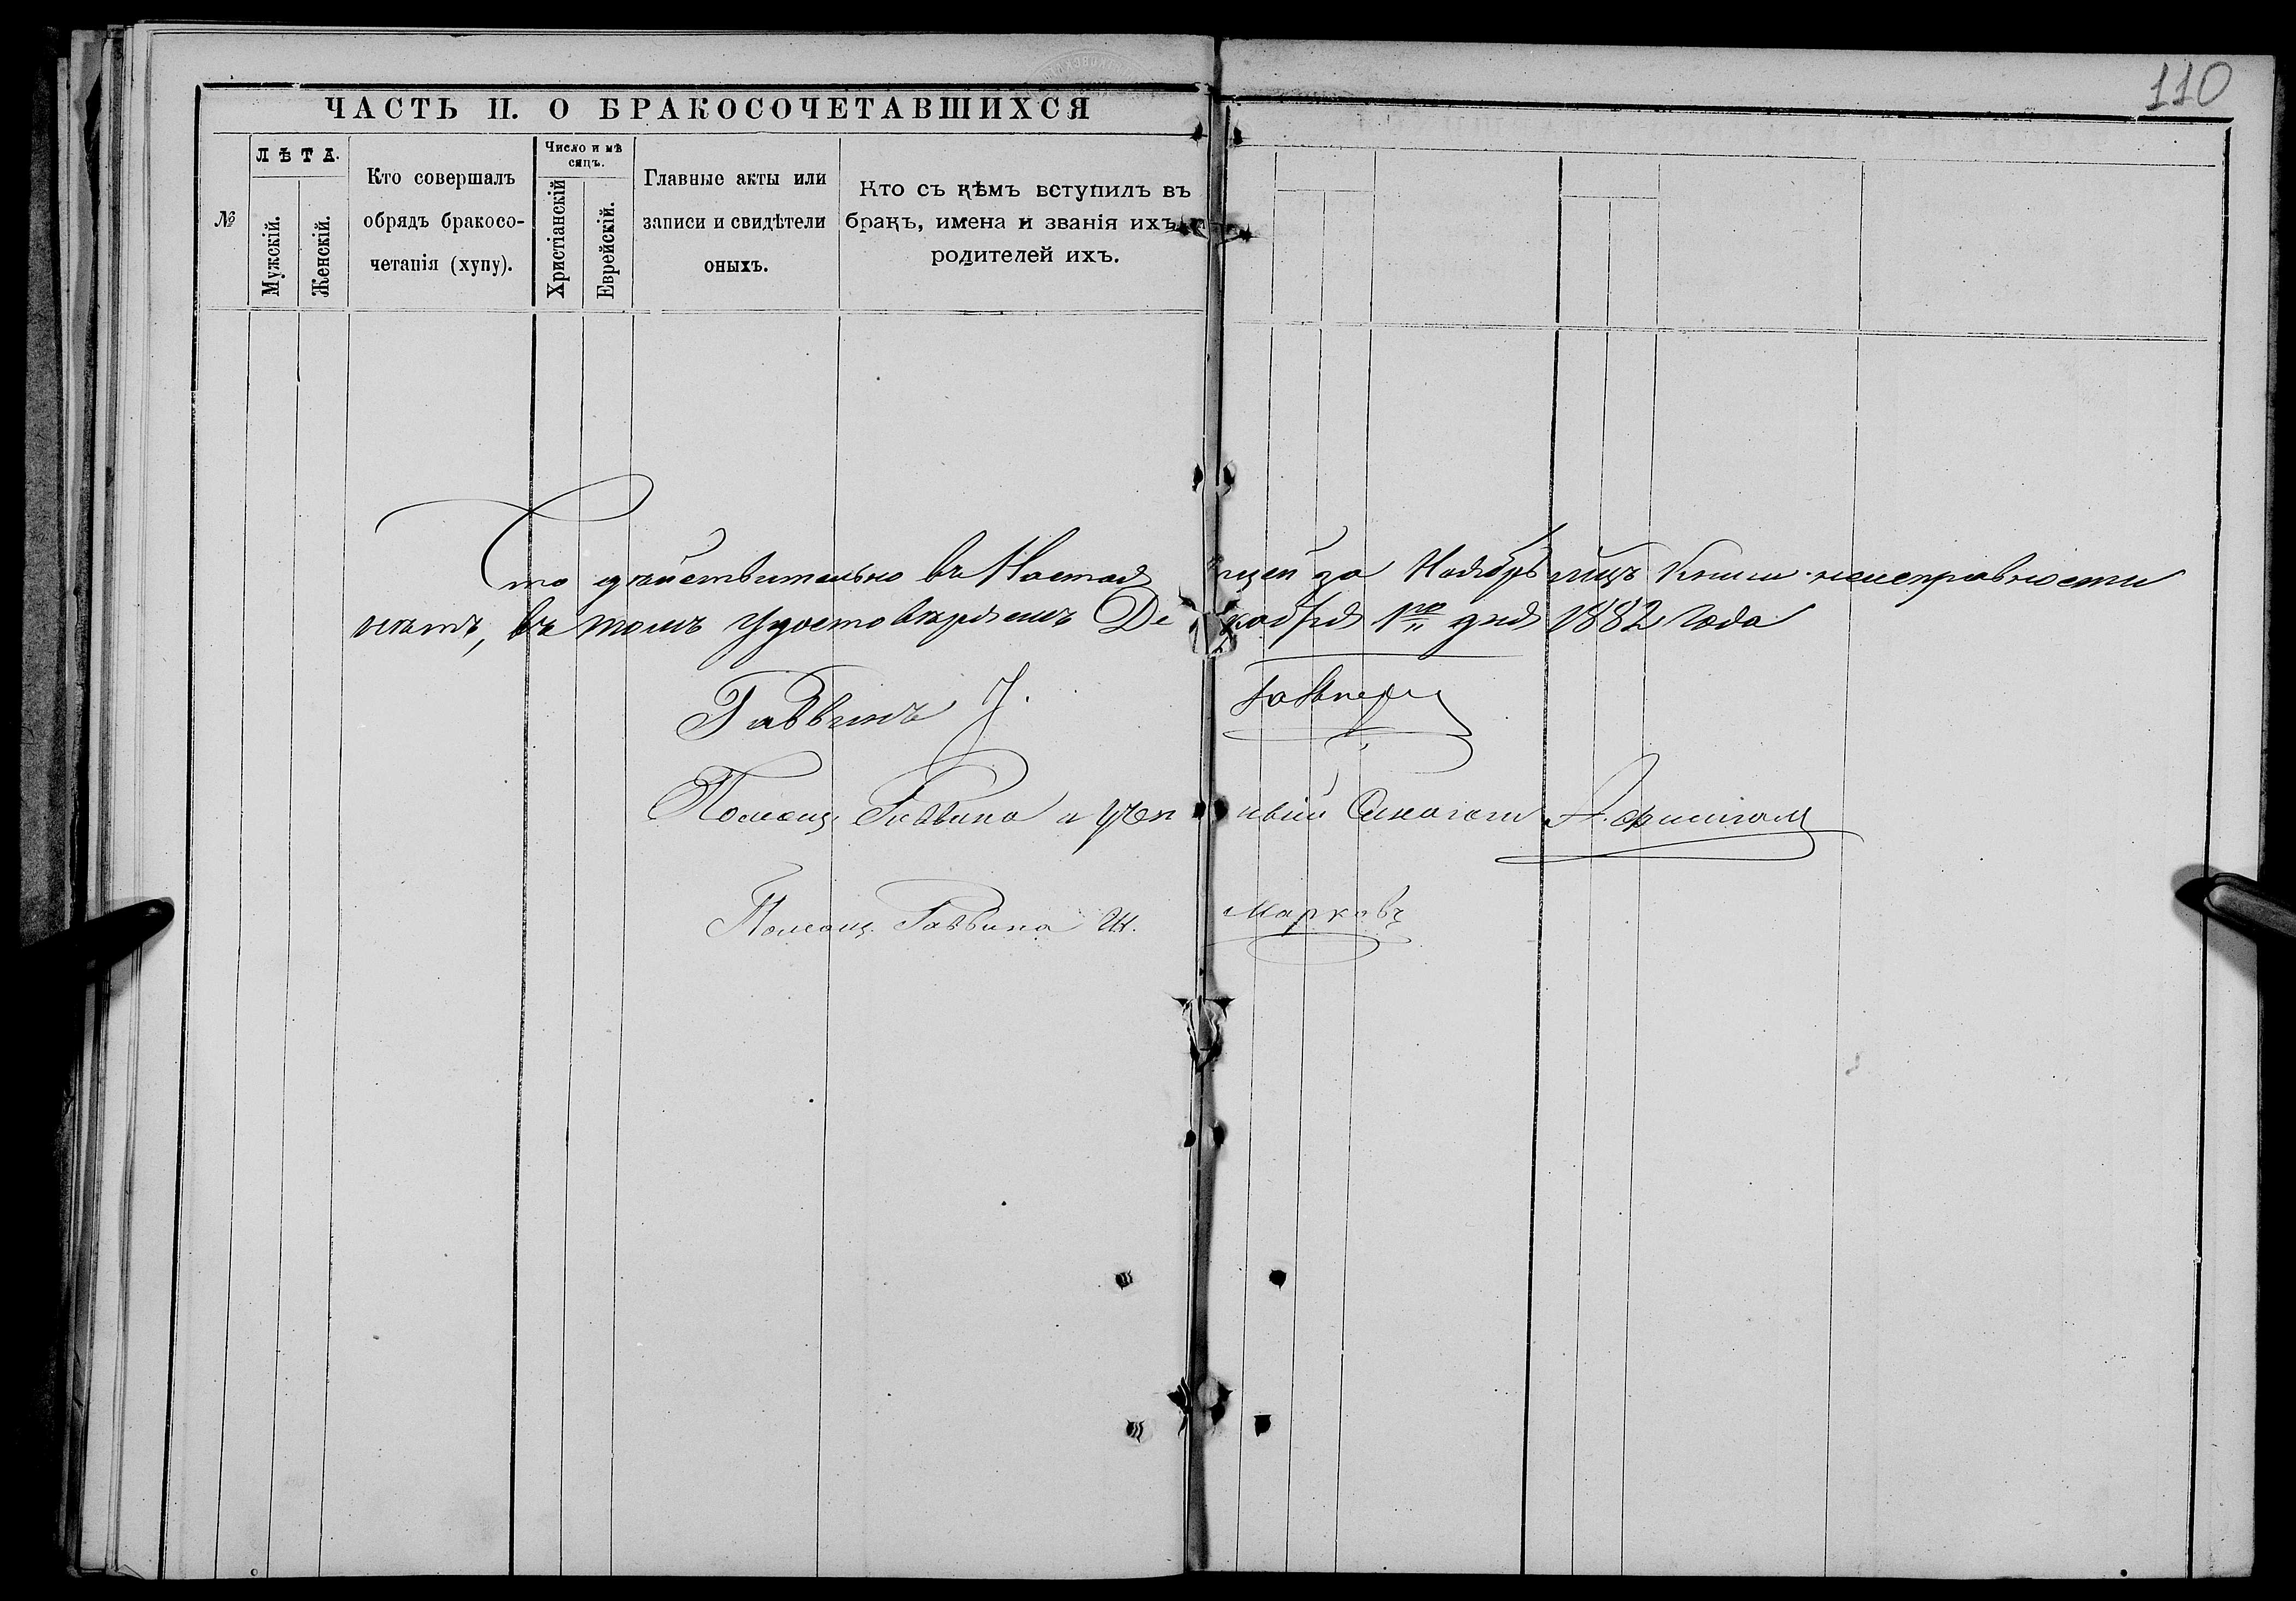 110
ЧАСТЬ II. О БРАКОСОЧЕТАВШИХСЯ
№
ЛѢТА.
Мужскій.
Женскій.
Кто совершалъ
обрядъ бракосо-
четанія (хупу).
Число и мѣ
сяцъ.
Христіанскій
Еврейскій.
Главные акты или
записи и свидѣтели
оныхъ.
Кто съ кѣмъ вступилъ въ
бракъ, имена и званія ихъ и
родителей ихъ.
Что действительно въ Настоящей за Ноябрь мцъ Книги неисправности
нѣтъ, въ томъ удостовѣряемъ Декабря 1го дня 1882 года
Раввинъ
Помощ. Раввина и Ученый
Помощ. Раввина Ш. Марковъ